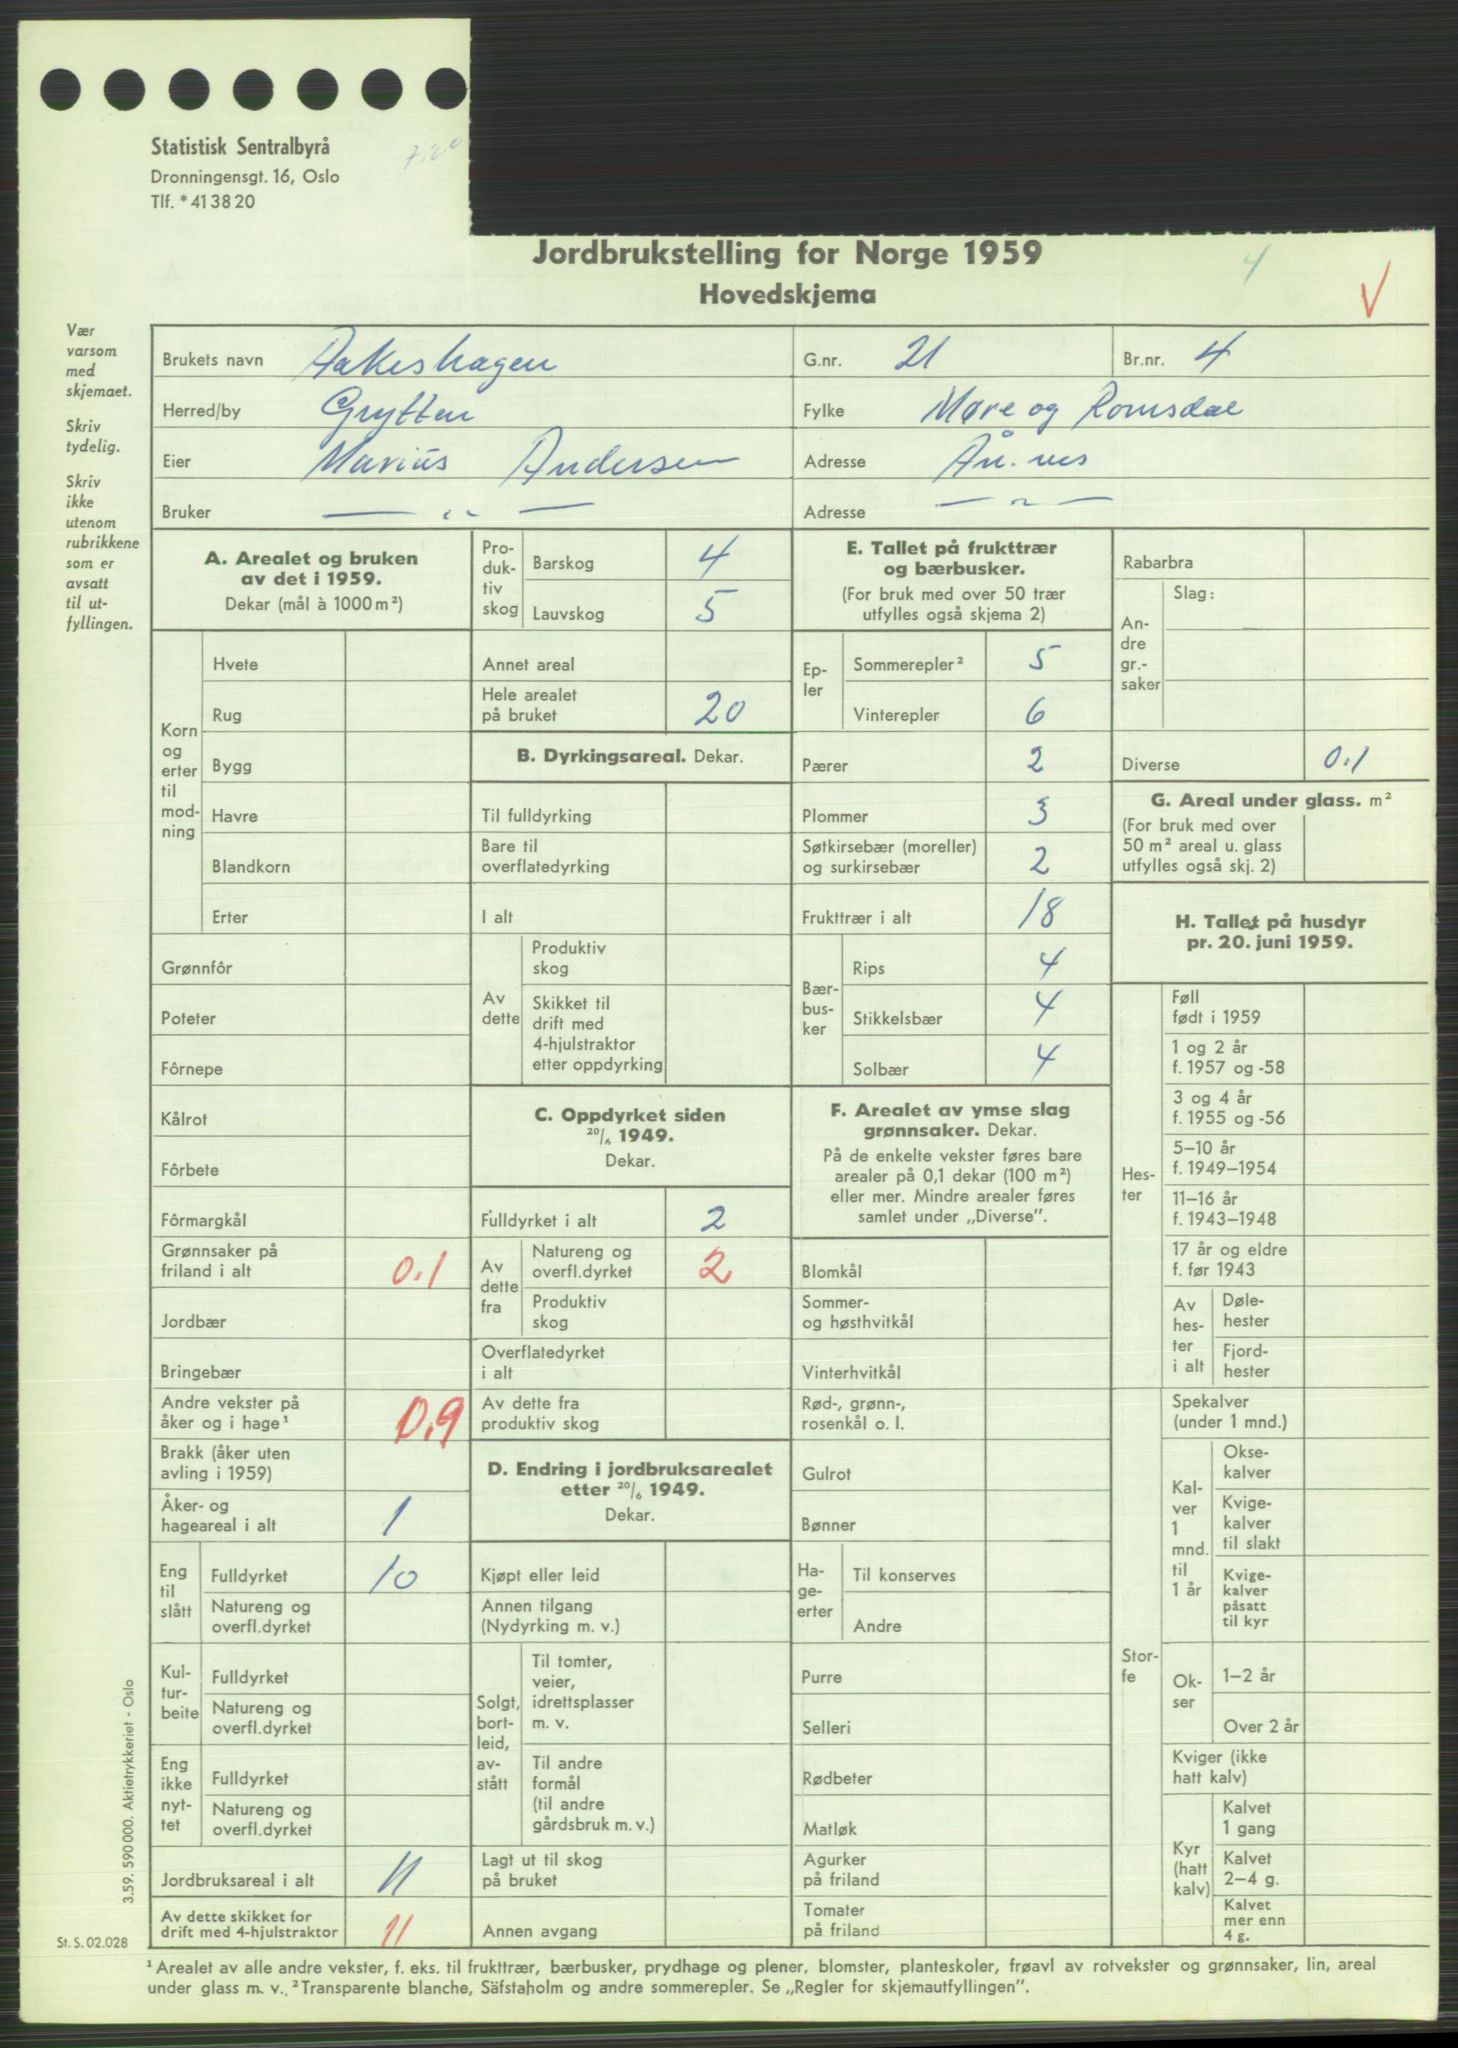 Statistisk Sentralbyrå
Dronningensgt. 16, Oslo
Tlf. * 41 38 20
Jordbrukstelling for Norge 1959
4
V
Hovedskjema
Vær
varsom
med
skjemaet.
Skriv
tydelig.
Skriv
ikke
utenom
rubrikkene
som er
avsatt
til ut-
fyllingen.
Brukets navn Aakeshagen G.nr. 21 Br.nr. 4
Herred/by Grytten Fylke Møre og Romsdal
Eier Marius Andersen Adresse Ån.nes
Bruker — „ — Adresse — „ —
A. Arealet og bruken
av det i 1959.
Dekar (mål à 1000 m²)
Korn
og
erter
til
mod-
ning
Hvete
Rug
Bygg
Havre
Blandkorn
Erter
Grønnfôr
Poteter
Fôrnepe
Kålrot
Fôrbete
Fôrmargkål
Grønnsaker på
friland i alt 0.1
Jordbær
Bringebær
Andre vekster på
åker og i hage¹ 0.9
Brakk (åker uten
avling i 1959)
Åker- og
hageareal i alt 1
Eng
til
slått
Fulldyrket 10
Natureng og
overfl.dyrket
Kul-
tur-
beite
Fulldyrket
Natureng og
overfl.dyrket
Eng
ikke
nyt-
tet
Fulldyrket
Natureng og
overfl.dyrket
Jordbruksareal i alt 11
Av dette skikket for
drift med 4-hjulstraktor 11
Pro-
duk-
tiv
skog
Barskog 4
Lauvskog 5
Annet areal
Hele arealet
på bruket 20
B. Dyrkingsareal. Dekar.
Til fulldyrking
Bare til
overflatedyrking
I alt
Av
dette
Produktiv
skog
Skikket til
drift med
4-hjulstraktor
etter oppdyrking
C. Oppdyrket siden
20/6 1949.
Dekar.
Fulldyrket i alt 2
Av
dette
fra
Natureng og
overfl.dyrket 2
Produktiv
skog
Overflatedyrket
i alt
Av dette fra
produktiv skog
D. Endring i jordbruksarealet
etter 20/6 1949.
Dekar.
Kjøpt eller leid
Annen tilgang
(Nydyrking m. v.)
Solgt,
bort-
leid,
av-
stått
Til tomter,
veier,
idrettsplasser
m. v.
Til andre
formål
(til andre
gårdsbruk m. v.)
Lagt ut til skog
på bruket
Annen avgang
E. Tallet på frukttrær
og bærbusker.
(For bruk med over 50 trær
utfylles også skjema 2)
Ep-
ler
Sommerepler² 5
Vinterepler 6
Pærer 2
Plommer 3
Søtkirsebær (moreller)
og surkirsebær 2
Frukttrær i alt 18
Bær-
bus-
ker
Rips 4
Stikkelsbær 4
Solbær 4
F. Arealet av ymse slag
grønnsaker. Dekar.
På de enkelte vekster føres bare
arealer på 0,1 dekar (100 m²)
eller mer. Mindre arealer føres
samlet under „Diverse”.
Blomkål
Sommer-
og høsthvitkål
Vinterhvitkål
Rød-, grønn-,
rosenkål o. l.
Gulrot
Bønner
Ha-
ge-
erter
Til konserves
Andre
Purre
Selleri
Rødbeter
Matløk
Agurker
på friland
Tomater
på friland
Rabarbra
An-
dre
gr.-
saker
Slag:
Diverse 0.1
G. Areal under glass. m²
(For bruk med over
50 m² areal u. glass
utfylles også skj. 2)
H. Tallet på husdyr
pr. 20. juni 1959.
Hes-
ter
Føll
født i 1959
1 og 2 år
f. 1957 og -58
3 og 4 år
f. 1955 og -56
5–10 år
f. 1949–1954
11–16 år
f. 1943–1948
17 år og eldre
f. før 1943
Av
hes-
ter
i alt
Døle-
hester
Fjord-
hester
Stor-
fe
Spekalver
(under 1 mnd.)
Kal-
ver
1
mnd.
til
1 år
Okse-
kalver
Kvige-
kalver
til slakt
Kvige-
kalver
påsatt
til kyr
Ok-
ser
1–2 år
Over 2 år
Kviger (ikke
hatt kalv)
Kyr
(hatt
kalv)
Kalvet
1 gang
Kalvet
2–4 g.
Kalvet
mer enn
4 g.
3.59. 590 000. Aktietrykkeriet - Oslo
St. S. 02.028
¹ Arealet av alle andre vekster, f. eks. til frukttrær, bærbusker, prydhage og plener, blomster, planteskoler, frøavl av rotvekster og grønnsaker, lin, areal
under glass m. v. ² Transparente blanche, Säfstaholm og andre sommerepler. Se „Regler for skjemautfyllingen”.